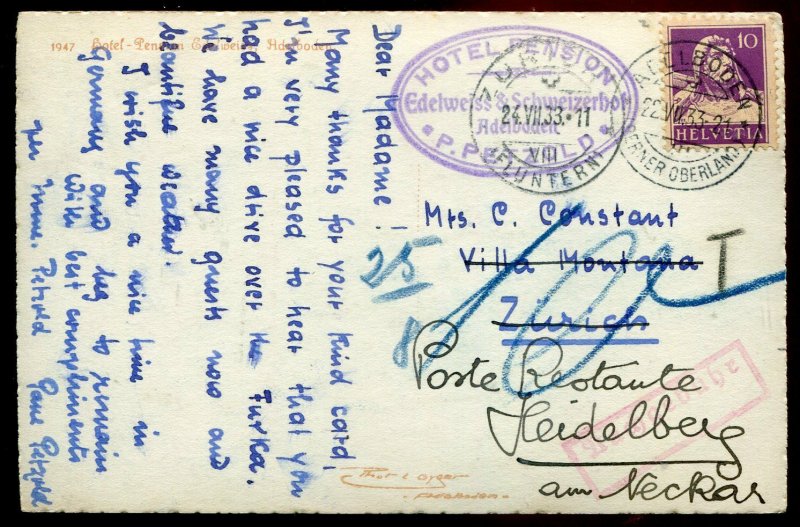 1947 Hotel-Pension Edelweiss, Adelboden
Dear Madame!
Many thanks for your kind card,
I'm very pleased to hear that you
had a nice drive over the Furka.
We have many guests now and
beautiful weather.
I wish you a nice time in
Germany and beg to remain
With best compliments
Petzold
HOTEL PENSION
Edelweiss & Schweizerhof
Adelboden
P. PETZOLD
ZÜRICH
24.VII.33.-11
VIII
(FLUNTERN)
ADELBODEN
22.VII.33.-21
(BERNER OBERLAND)
10
HELVETIA
Mrs. C. Constant
Villa Montana
Zurich
T
25
Poste Restante
Heidelberg
am Neckar